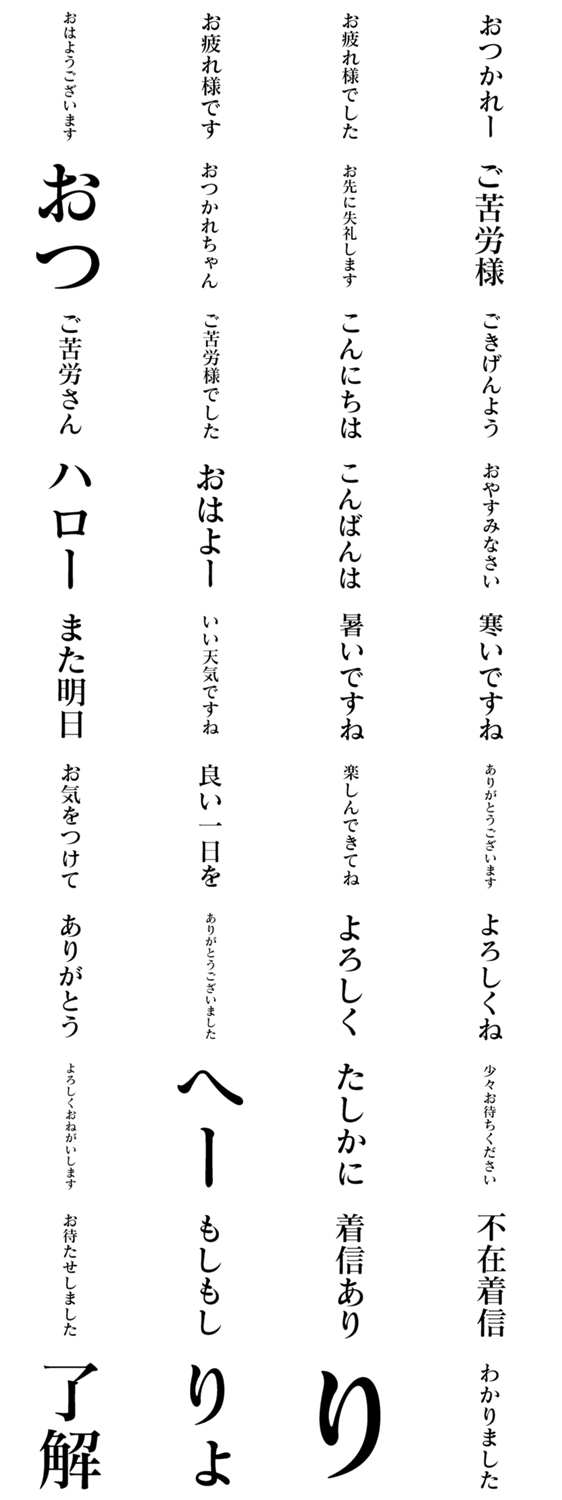 おはようございます
お疲れ様です
お疲れ様でした
おつかれー
おつ
おつかれちゃん
お先に失礼します
ご苦労様
ご苦労さん
ご苦労様でした
こんにちは
ごきげんよう
ハロー
おはよー
こんばんは
おやすみなさい
また明日
いい天気ですね
暑いですね
寒いですね
お気をつけて
良い一日を
楽しんできてね
ありがとうございます
ありがとう
ありがとうございました
よろしく
よろしくね
よろしくおねがいします
へー
たしかに
少々お待ちください
お待たせしました
もしもし
着信あり
不在着信
了解
りょ
り
わかりました